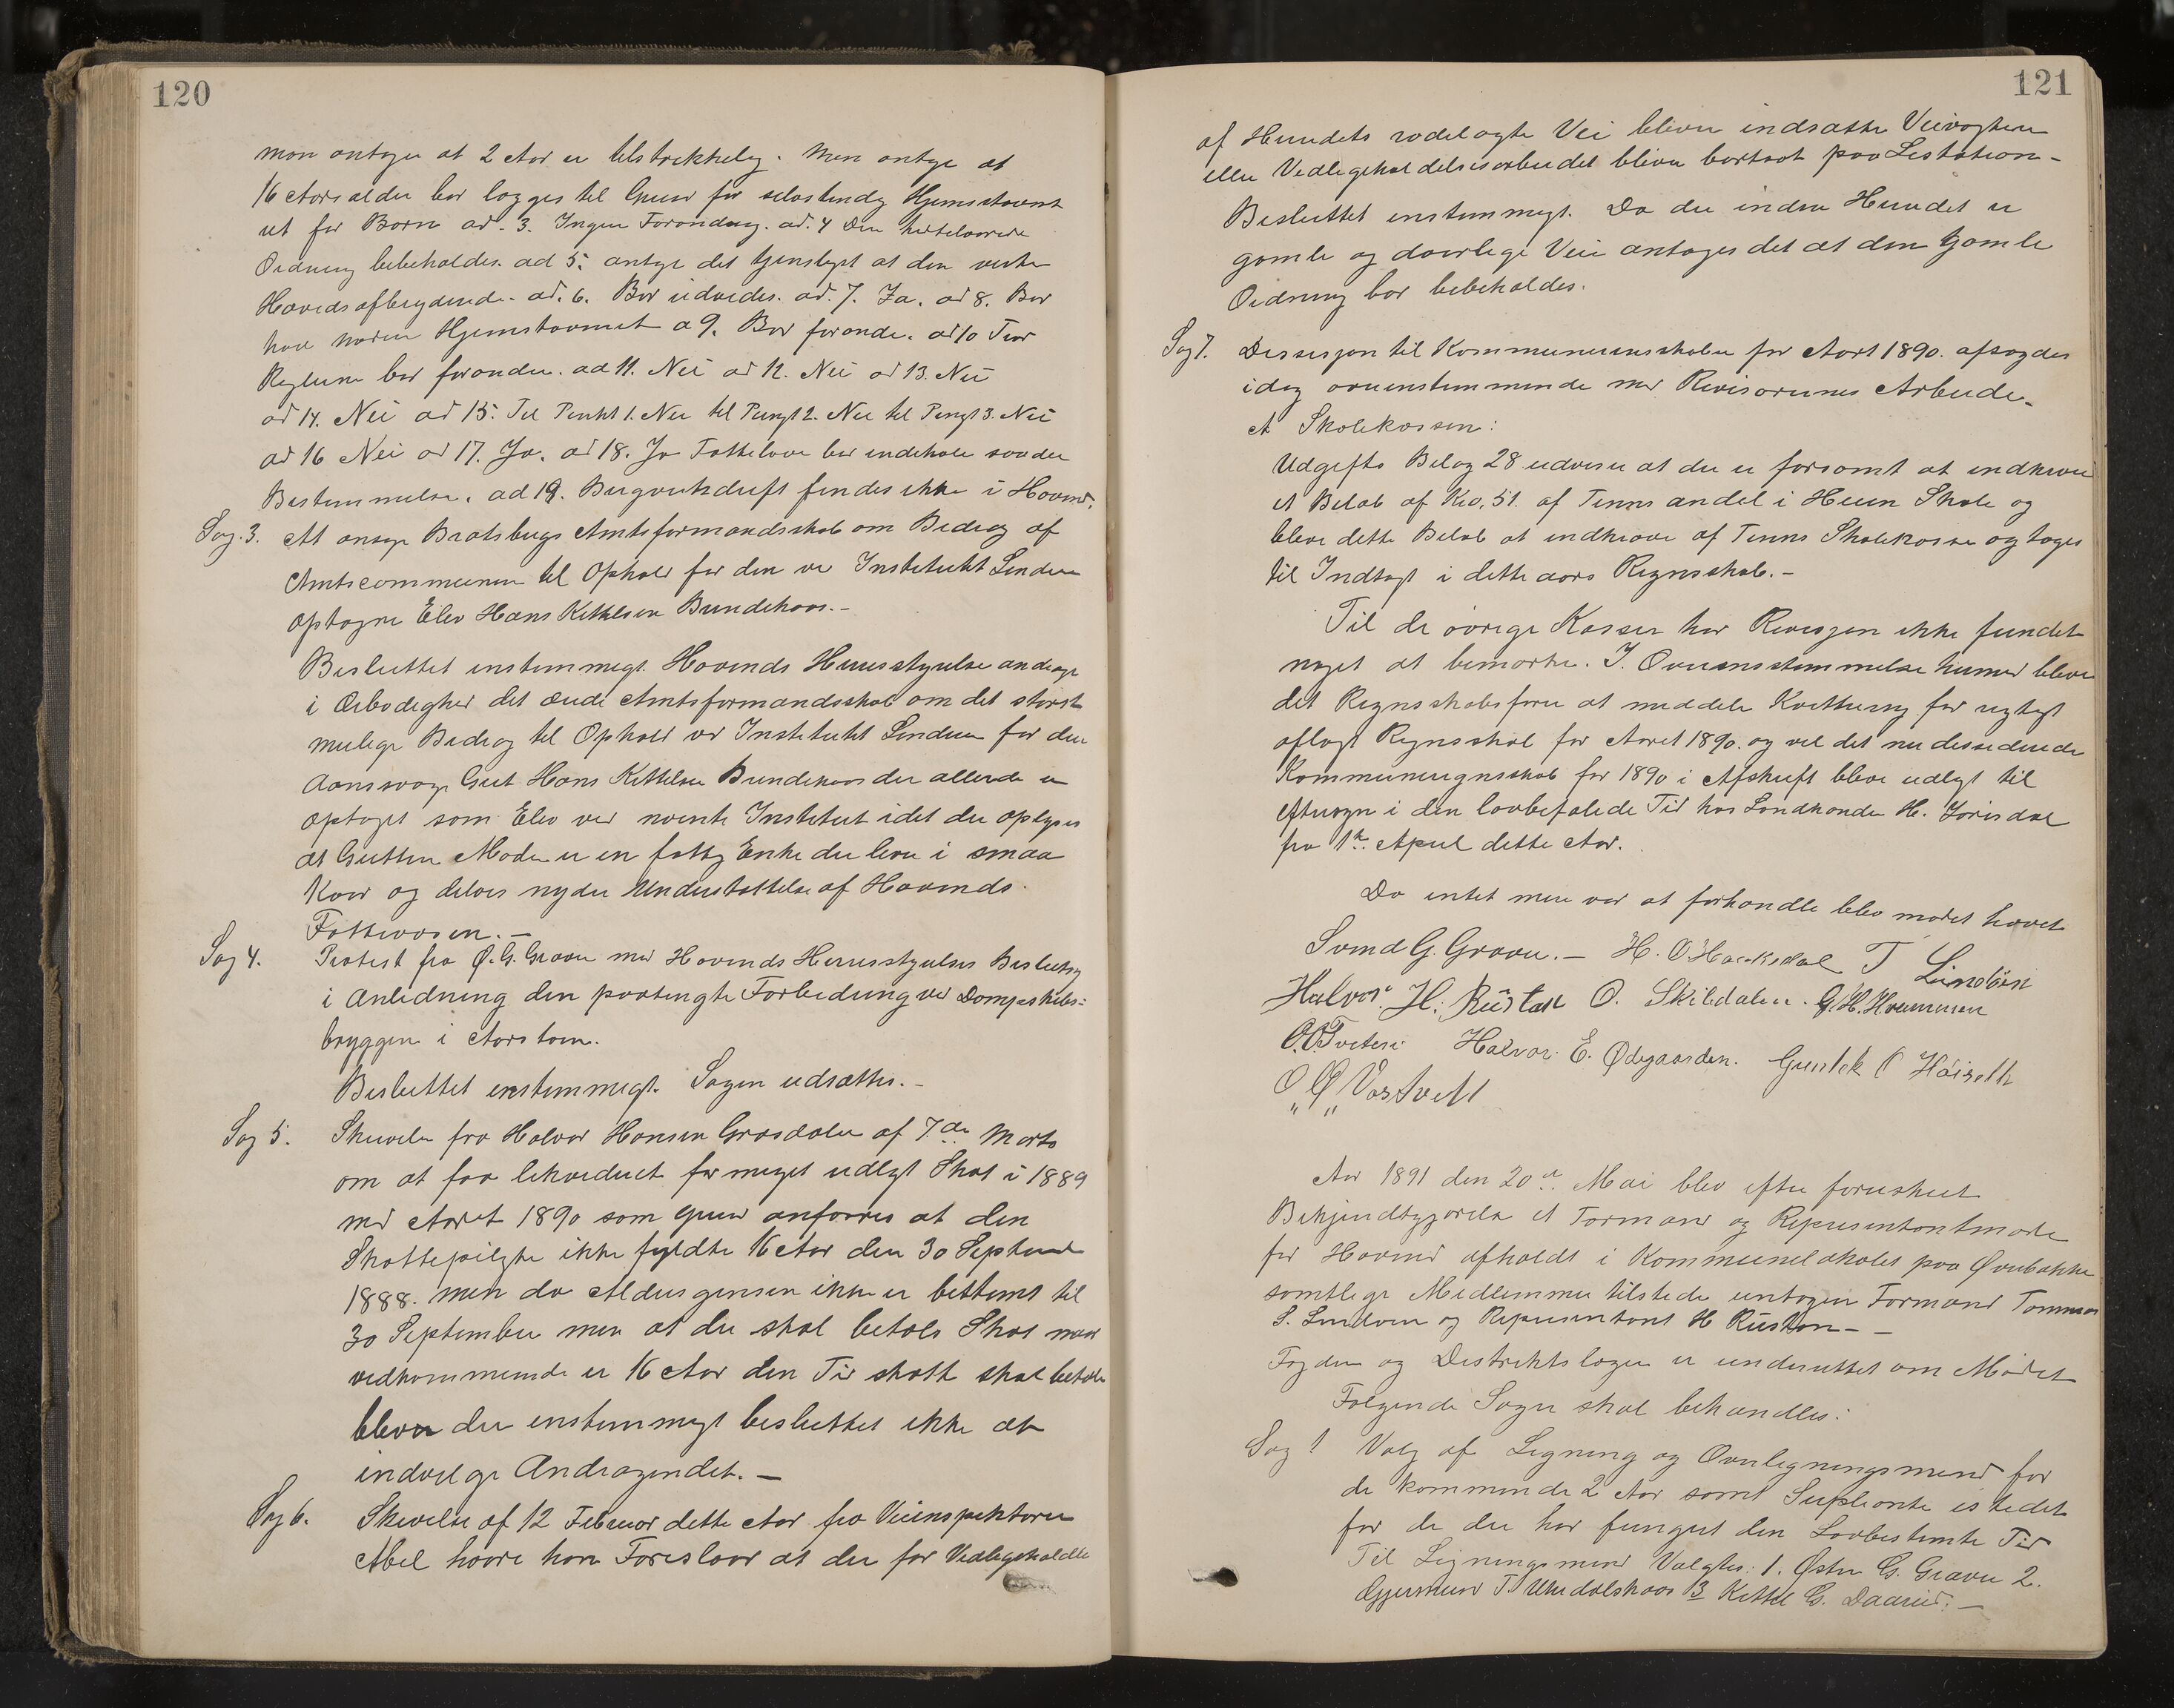 120
man antager at 2 Aar er tilstrekkelig. Men antager at
16 Aars alder bør lægges til Grund for selvstendig Hjemstavns
ret for Børn ad. 3. Ingen Forandring. ad. 4 Den
Ordning bebeholdes. ad 5. antage det
Hovedsafbrydende. ad. 6. Bør udvides. ad. 7. Ja. ad 8. Bør
have Hjemstavnsret a 9. Bør forandr. ad 10
Reglerne bør forandre. ad 11. Nei ad 12. Nei ad 13. Nei
ad 14. Nei ad 15. Til Punkt 1. Nei til Pungt 2. Nei til Pungt 3. Nei
ad 16 Nei ad 17. Ja. ad 18. Ja Fattilove bør indehole saadan
Bestemmelse. ad 19. Bergverksdrift findes ikke i Hovind.
Sag. 3. At ansøge Bratsbergs Amtsformandskab om Bidrag af
Amtscommunen til Ophold for den ved Institutet Lindum
optagne Elev Hans Kittelsen Bundekaas.-
Besluttet enstemmigt. Hovinds Herresstyrelse andrage
i Ærbødighed det ærede Amtsformandsskab om det størst
mulige Bidrag til Ophold ved Institutet Lindum for den
aansvage Gut Hans Kittelsen Bundekaas der allerede er
optaget som Elev ved nevnte Institut idet der oplyses
at Gutten Moder er en fattig Enke der lever i smaa
Kaar og delvis nyder Understøttelse af Hovinds
Fattivæsen.-
Sag 4. Protest fra Ø. G. Graver mod Hovinds Herresstyrelses Beslutning
i Anledning den paatengte Forbedring ved Dampskibs-
bryggen i
Besluttet enstemmigt. Sagen udsættes.-
Sag 5. Skrivelse fra Halvor Hansen Grasdalen af 7de Marts
om at faa likvideret for meget udlagt Skat i 1889
med Aaret 1890 som grund anføres at den
Skattepligte ikke fyldte 16 Aar den 30 September
1888. men da Aldersgrensen ikke er bestemt til
30 September men at der skal betale Skat naar
vedkommende er 16 Aar den Tid skatt skal betale
bleve der enstemmigt besluttet ikke at
indvilge Andragendet.-
Sag 6. Skrivelse af 12 Februar dette Aar fra Veiinspektøren
Abel hvori han Foreslaar at der for Vedligeholdle
121
af Herredets rodelagte Vei bliver indsatte Veivogtere
eller Vedligeholdelsisarbeidet bliver bortsat paa Listation-
Besluttet enstemmigt. Da der inden Herredet er
gamle og daarlige Veie antages det at den gamle
Ordning bør bebeholdes.
Sag 7. Dessisjon til Kommuneregnskaber for Aart 1890. afsagdes
idag overenstemmende med Revisorernes Arbeide.
A Skolekassen:
Udgifts Bilag 28 udviser at der er forsømt at indkreve
et Beløb af Kr. 51. af Tinns andel i Skole og
bleve dette Beløb at indkræve af Tinns Skolekasse og tages
til Indtægt i dette aars Regnskab.-
Til de øvrige Kasser har Revisjon ikke fundet
noget at bemærke. I Overensstemmelse hermed bleve
det Regnskabsfører at meddele Kvittering for rigtigt
aflagt Regnskab for Aaret 1890. og vil det nu dessiderede
Kommuneregnskab for 1890 i Afskrift bleve udlagt til
Eftersyn i den lovbefalede Tid hos Landhandler H. Jørisdal
fra 1te April dette Aar.
Da intet mere var at forhandle blev mødet hævet
Svend G. Graver. - H. O. T Lindøen
Halvor. H. Rustan O. Skibdalen. G. H.
O. O. Tveten Halvor E. Ødegaarden. Guntek O
O. O. Vostveit
Aar 1891 den 20de Mai blev efter foruskret
Bekjendtgjørelse et Formand og Representantmøde
for Hovind afholdt i Kommunelokalet paa Øverbakke
samtlige Medlemmer tilstede untagen Formand
S. og Representant H Rustan--
Fogden og Destriktslægen er underrettet om Mødet
Følgende Sager skal behandles:
Sag 1 Valg af Ligning og Overligningsmend for
de kommende 2 Aar samt Suplianter istedet
for de der har fungert den Lovbestemte Tid
Til Ligningsmend Valgtes: 1. Østen G. Graver 2.
Gjermund T. 3 Kittel G. Daarud.-